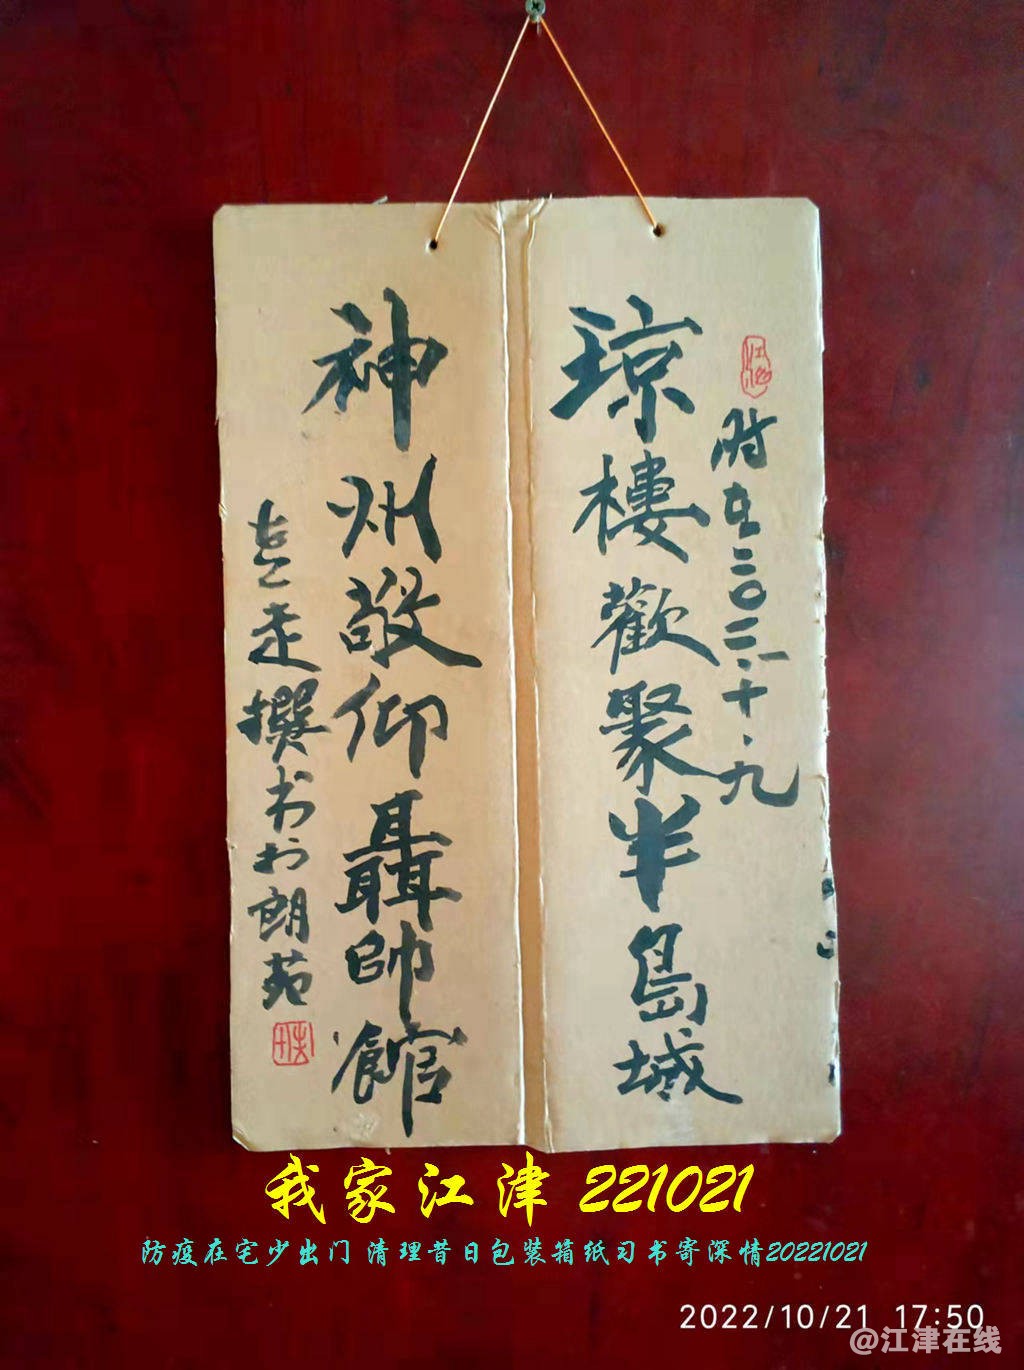 时在二〇二二.十.九
琼樓歡聚半島城
神州敬仰聶帥館
走撰书于朗苑
我家江津 221021
防疫在宅少出门 清理昔日包装箱纸习书寄深情20221021
2022/10/21 17:50
@江津在线